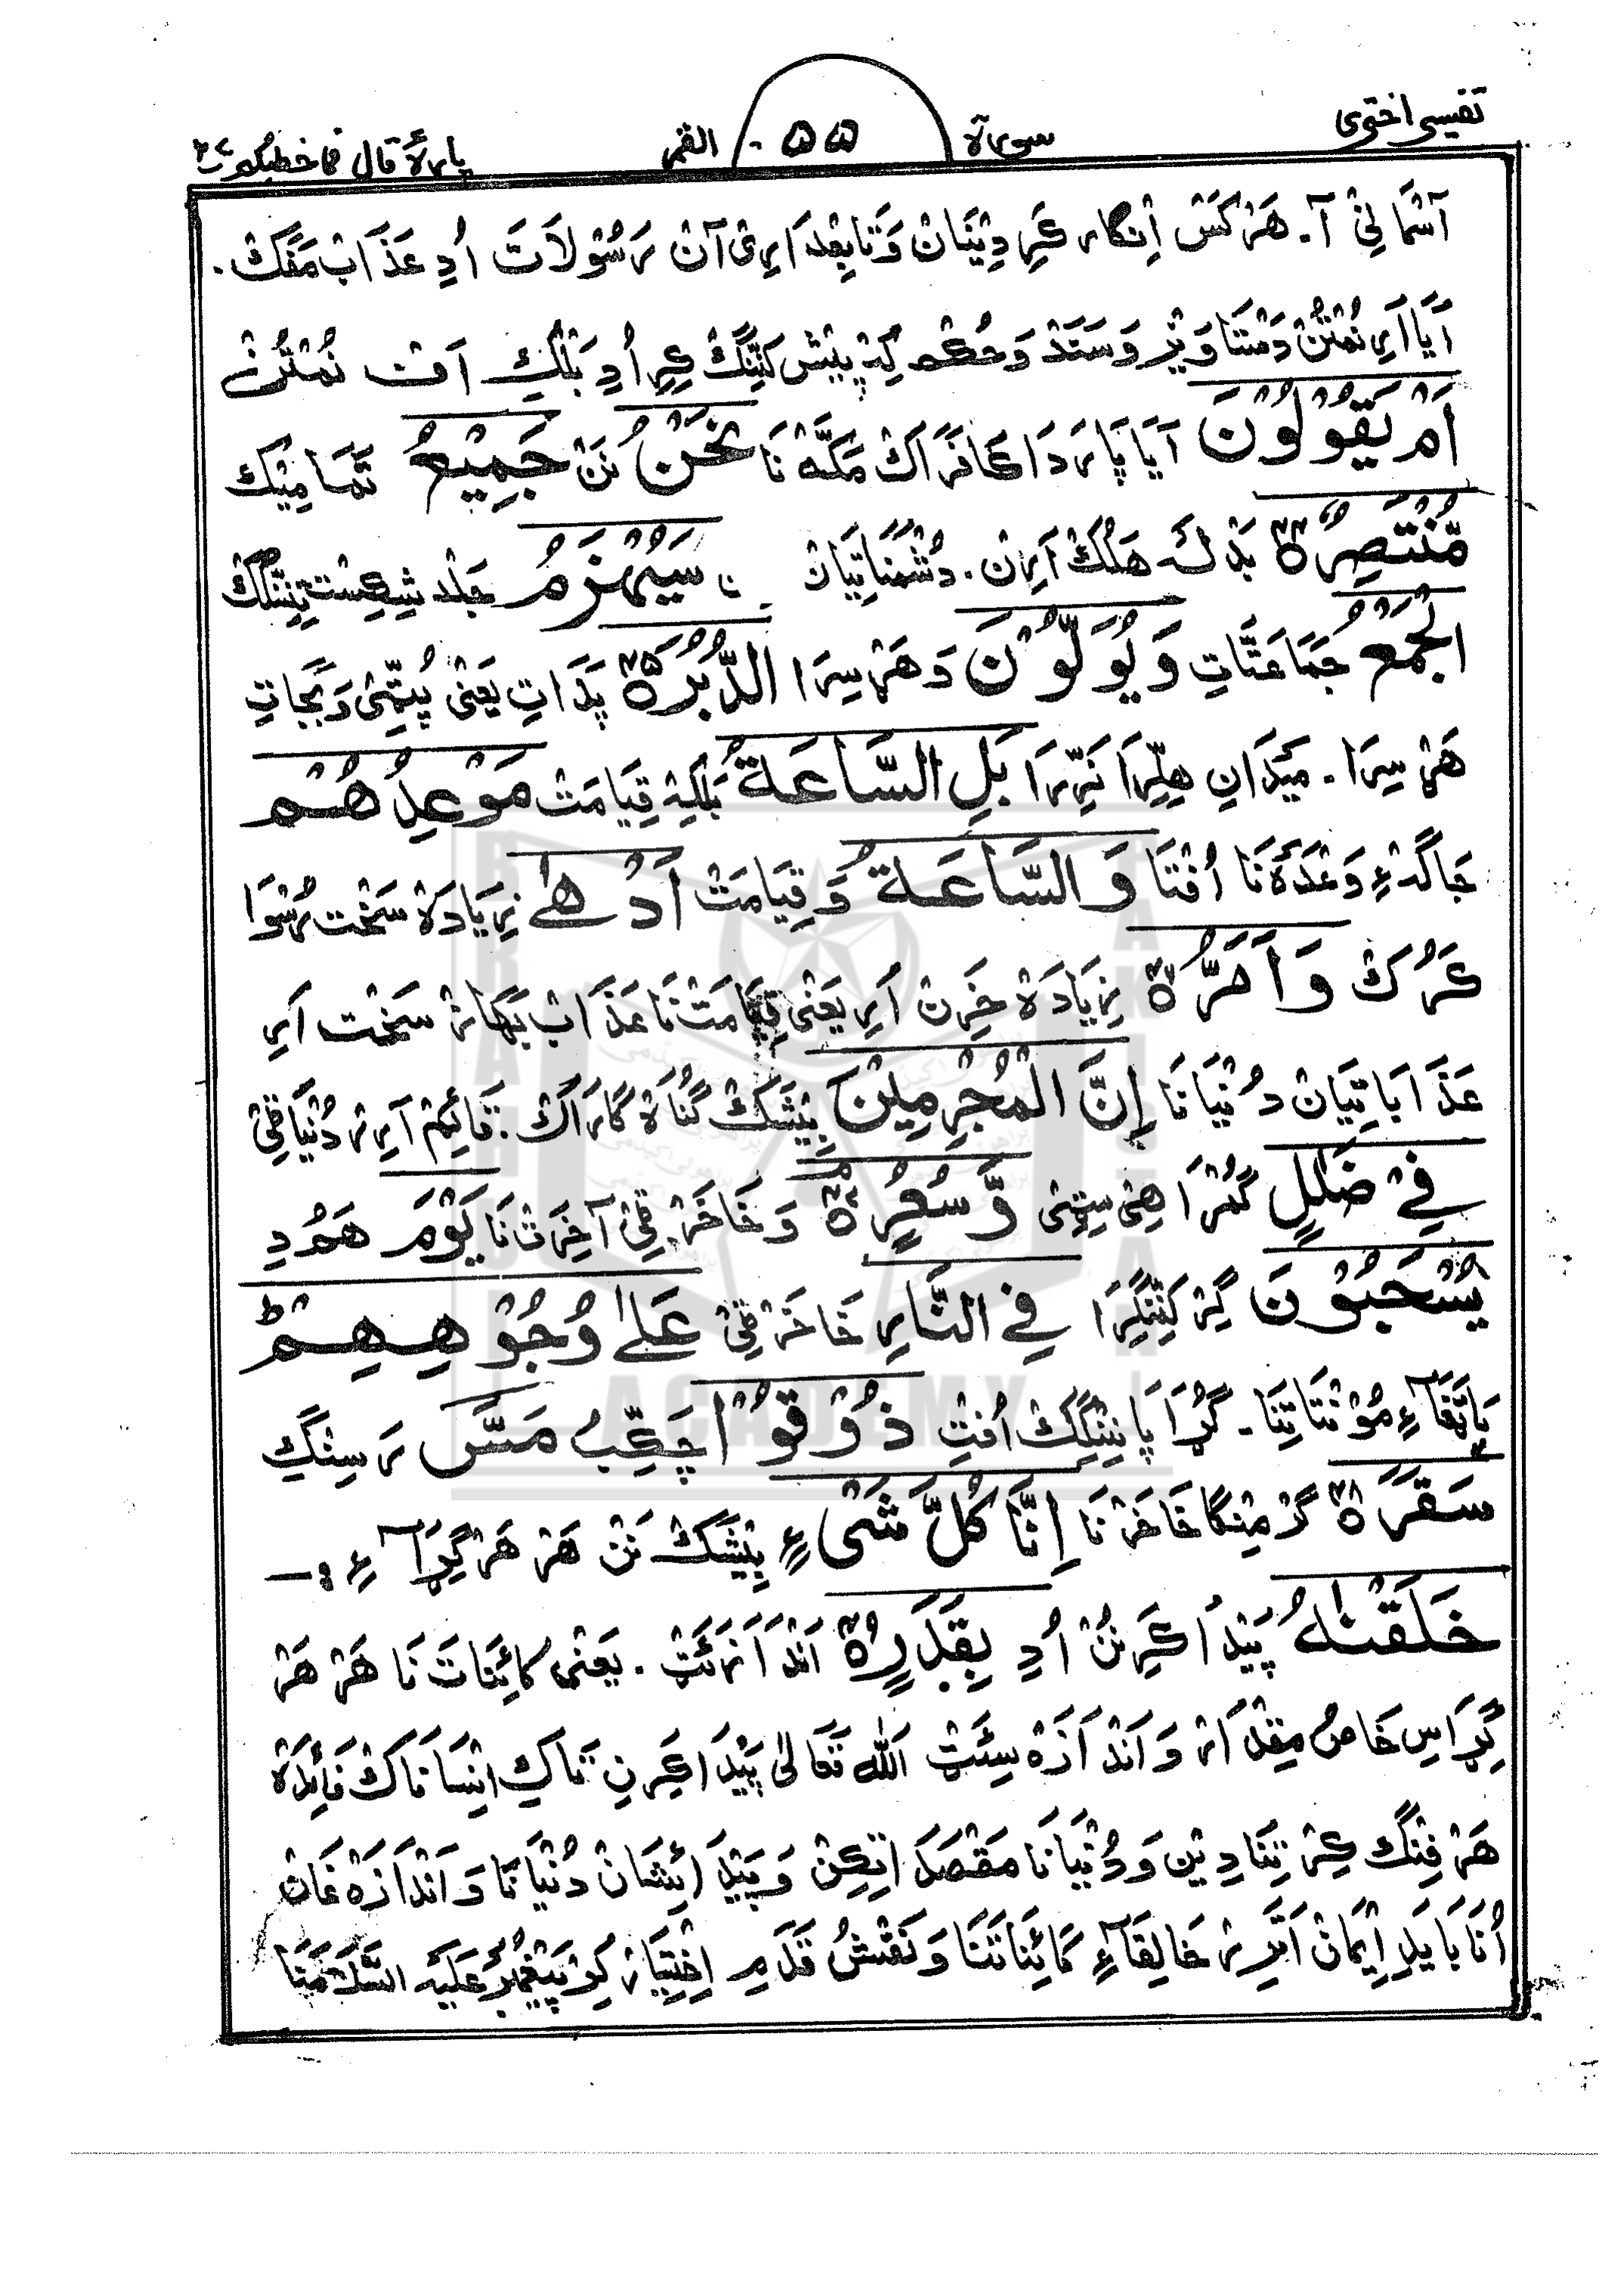 تفسیر اختری
سورة
۵۵
القمر
پارہ قال فما خطبکم ۲۷
آسْمَانِیْ آ. هَرْکَسْ اِنکَار کَرِ دِیْنَانْ وَتَابِعْدَارِیْ آنْ رَسُوْلَاتَ اُدِ عَذَابْ مَفَکْ.
آیَا اَرِ نُمْتُنْ دَسْتَاوَیْز وَسَنَدْ وَحُکْم کِہ پیْش کَنِّنگْ کِرِ اُدِ بَلْکِ اَفْ نُمْتُنْ
اَمْ یَقُوْلُوْنَ آیَا پَارَہ دَا کَافَرَاکْ مَکَّہْ نَا نَحْنُ نَنْ جَمِیْعٌ تَمَامِیْک
مُّنْتَصِرٌ ۴۴ بَدْلَہ هَلُکْ اَرِنْ. دُشْمَنَاتِیَانْ سَیُهْزَمُ جَلْد شِکِسْت تِنِنگْ
الْجَمْعُ جَمَاعَتَاتِ وَیُوَلُّوْنَ وَهَرْسِرَا الدُّبُرَ ۴۵ پَدَاتِ یَعْنِیْ پُٹِّیْ وَبَجَّاتِ
هَرْسِرَا. مَیْدَانِ هِلِّرَا نَرِّرَا بَلِ السَّاعَةُ بَلْکِہْ قِیَامَتْ مَوْعِدُهُمْ
جَاگَہْءِ وَعْدَہْ نَا اُفْتَا وَالسَّاعَةُ وَ قِیَامَتْ اَدْهٰی زِیَادَہْ سَخْت رُسْوَا
کَرُکْ وَاَمَرُّ ۴۶ زِیَادَہْ خَرِنْ اَرِ یَعْنِیْ قِیَامَتْ نَا عَذَابْ بَهَازْ سَخْت اَرِ
عَذَابَاتِیَانْ دُنْیَانَا اِنَّ الْمُجْرِمِیْنَ بِیْشَکْ گُنَاہْ گَارَاکْ. قَائِمْ اَرِرْ دُنْیَا ٹِیْ
فِیْ ضَلٰلٍ گُمْرَاهِیْ سِٹِیْ وَّسُعُرٍ ۴۷ وَخَاخَرْ ٹِیْ آخِرَتْ نَا یَوْمَ هَمُدِ
یُسْحَبُوْنَ گِرْ کَنِّنگِرَا فِی النَّارِ خَاخَرْ ٹِیْ عَلٰی وُجُوْهِهِمْ
بَاتَّغَاءِ مُوْنْتَاتِنَا. گُڑَا پَانِنگِکْ اُفْتِ ذُوْقُوْا چَکِّبُ مَسَّ رَسِنگِ
سَقَرَ ۴۸ گَرْمِنْگَا خَاخَرْ نَا اِنَّا کُلَّ شَیْءٍ بِیْشَکْ نَنْ هَرْ هَرْ گِڑَاءِ
خَلَقْنٰهُ پَیْدَا کَرِنُنْ اُدِ بِقَدَرٍ ۴۹ اَنْدَازَئَٹْ. یَعْنِیْ کَائِنَاتَ نَا هَرْ هَرْ
گِڑَاسِ خَاصْ مِقْدَارْ وَاَنْدَازَہْ سِئَٹْ اَللہ تَعَالٰی پَیْدَا کَرِنِ تَاکِ اِنْسَانَاکْ فَائِدَہْ
هَرْفِنگ کِرْ تِنَا دِیْن وَدُنْیَانَا مَقْصَدَ اٹِکِنْ وَپَیْدَائِشَانْ دُنْیَانَا وَاَنْدَازَہْ غَانْ
اُنَا بَایَدِ اِیْمَانْ اَتِّرْ خَالِقَاءِ کَائِنَاتَنَا وَنَقْشُ قَدَمِ اِخْتِیَارْ کِرْ پَیْغَمْبَرْ عَلَیْہِ السَّلَامَنَا